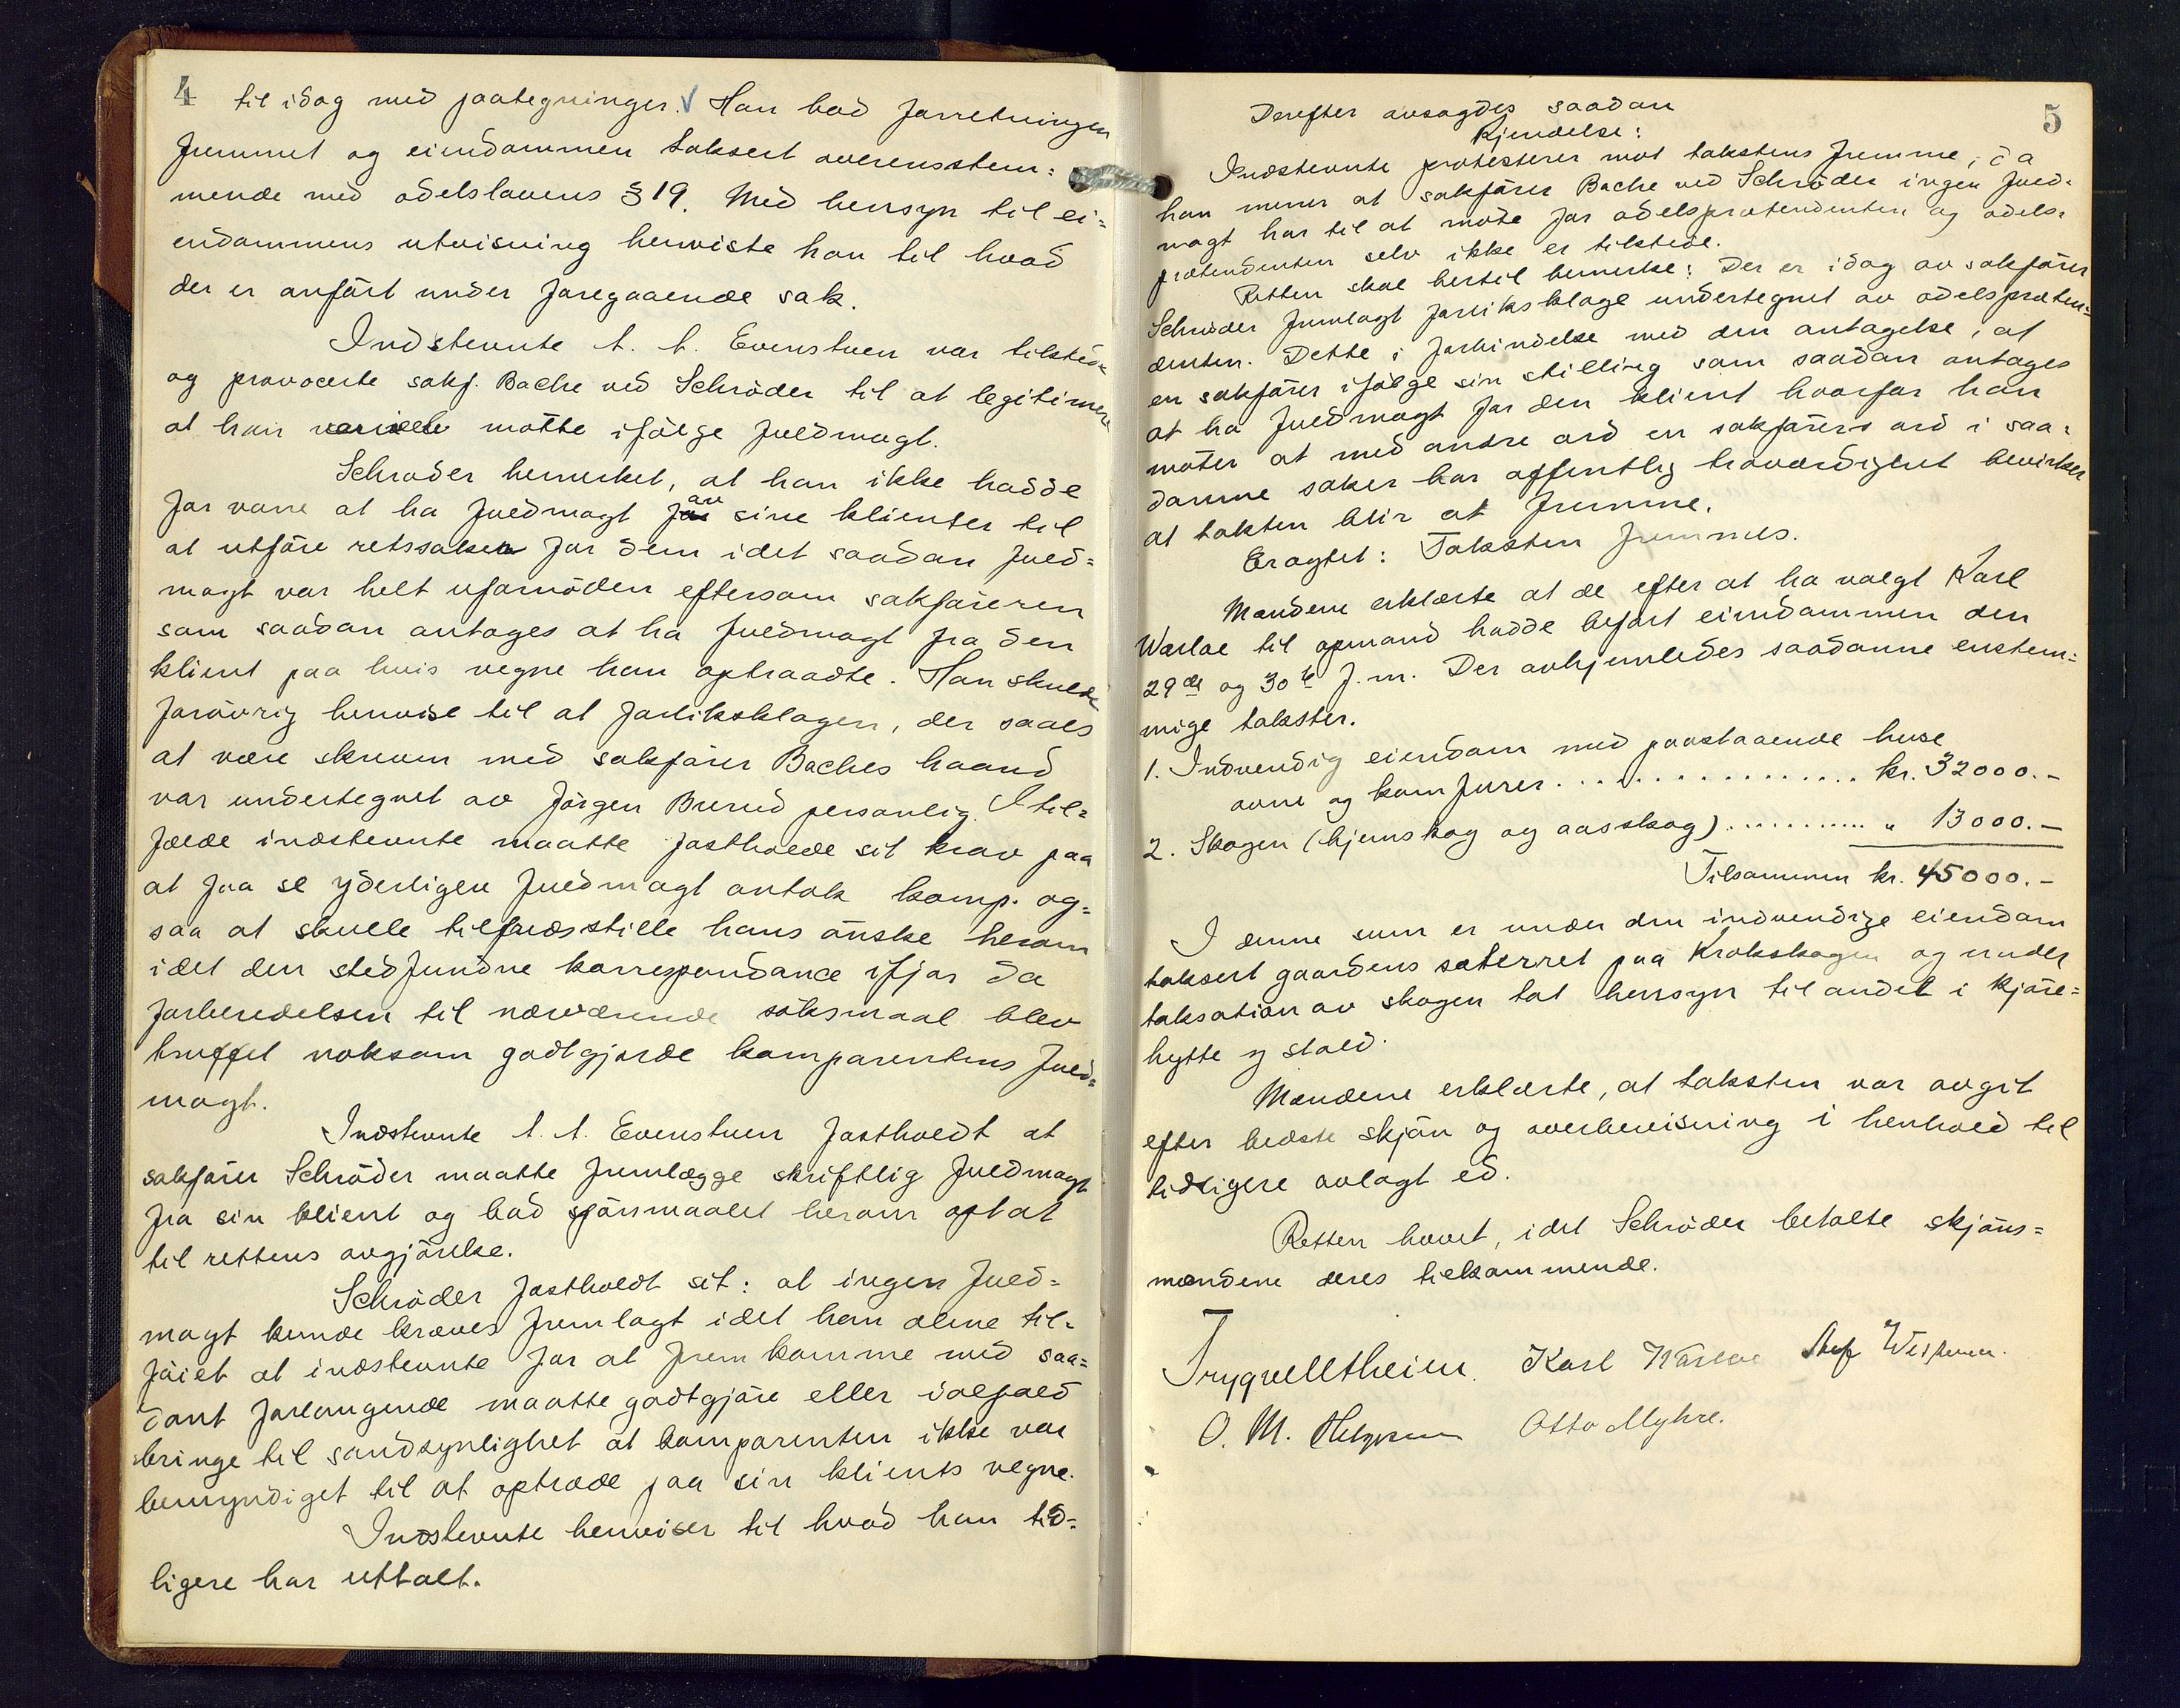 4
til idag med paategninger. √ Han bad forretningen
fremmet og eiendommen taksert overensstem=
mende med odelslovens § 19. Med hensyn til ei=
endommens utvisning henviste han til hvad
der er anført under foregaaende sak.
Indstevnte A. A. Evenstuen var tilstede
og provocerte sakf. Bache ved Schrøder til at legitimere
at han møtte ifølge fuldmagt.
Schrøder bemerket, at han ikke hadde
for vane at ha fuldmagt av sine klienter til
at utføre retssaken for dem idet saadan fuld=
magt var helt ufornøden eftersom sakføreren
som saadan antages at ha fuldmagt fra den
klient paa hvis vegne han optraadte. Han skulde
forøvrig henvise til at forliksklagen, der saaes
at være skreven med sakfører Baches haand
var undertegnet av Jørgen Burud personlig. I til=
fælde indstevnte maatte fastholde sit krav paa
at faa se yderligere fuldmagt antok komp. og=
saa at skulle tilfredsstille hans ønske herom
idet den stedfundne korrespondance ifjor da
forberedelsen til nærværende søksmaal blev
truffet noksom godtgjorde komparentens fuld=
magt.
Indstevnte A. A. Evenstuen fastholdt at
sakfører Schrøder maatte fremlægge skriftlig fuldmagt
fra sin klient og bad spørsmaalet herom optat
til rettens avgjørelse.
Schrøder fastholdt sit: at ingen fuld=
magt kunde kræves fremlagt idet han alene til=
føiet at indstevnte for at fremkomme med saa=
dant forlangende maatte godtgjøre eller ialfald
bringe til sandsynlighet at komparenten ikke var
bemyndiget til at optræde paa sin klients vegne.
Indstevnte henviser til hvad han tid=
ligere har uttalt.
5
Derefter avsagdes saadan
Kjendelse:
Indstevnte protesterer mot takstens fremme, da
han mener at sakfører Bache ved Schrøder ingen fuld=
magt har til at møte for odelsprætendenten og odels=
prætendenten selv ikke er tilstede.
Retten skal hertil bemerke: Der er idag av sakfører
Schrøder fremlagt forliksklage undertegnet av odelspræten=
denten. Dette i forbindelse med den antagelse, at
en sakfører ifølge sin stilling som saadan antages
at ha fuldmagt for den klient hvorfor han
møter at med andre ord en sakførers ord i saa=
danne saker har offentlig troværdighet bevirker
at taksten blir at fremme.
Eragtet: Taksten fremmes.
Mændene erklærte at de efter at ha valgt Karl
Warloe til opmand hadde befart eiendommen den
29de og 30te f. m. Der avhjemledes saadanne enstem=
mige takster.
1. Indvendig eiendom med paastaaende huse
ovne og komfurer................. kr. 32000.-
2. Skogen (hjemskog og aasskog)............ " 13000.-
Tilsammen kr. 45000.-
I denne sum er under den indvendige eiendom
taksert gaardens sæterret paa Krokskogen og under
taksation av skogen tat hensyn til andel i kjøre=
hytte og stald.
Mændene erklærte, at taksten var avgit
efter bedste skjøn og overbevisning i henhold til
tidligere avlagt ed.
Retten hævet, idet Schrøder betalte skjøns=
mændene deres tilkommende.
Trygve Utheim. Karl Warloe
O. M. Otto Myhre.